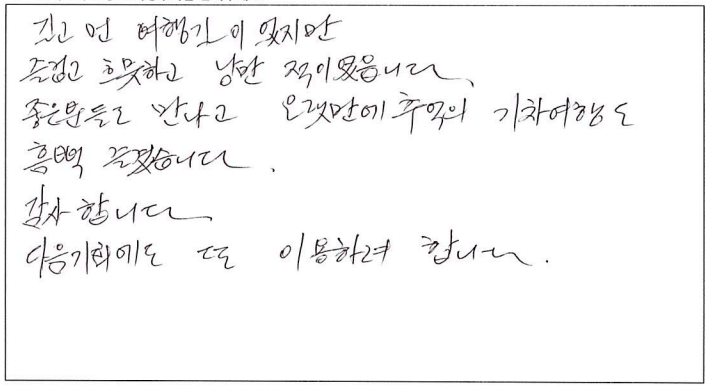 길고 먼 여행길이 였지만
즐겁고 흐뭇하고 낭만 적이였읍니다.
좋은분들도 만나고 오랫만에 추억의 기차여행도
흠뻑 즐겼습니다.
감사 합니다.
다음기회에도 또 이용하려 합니다.